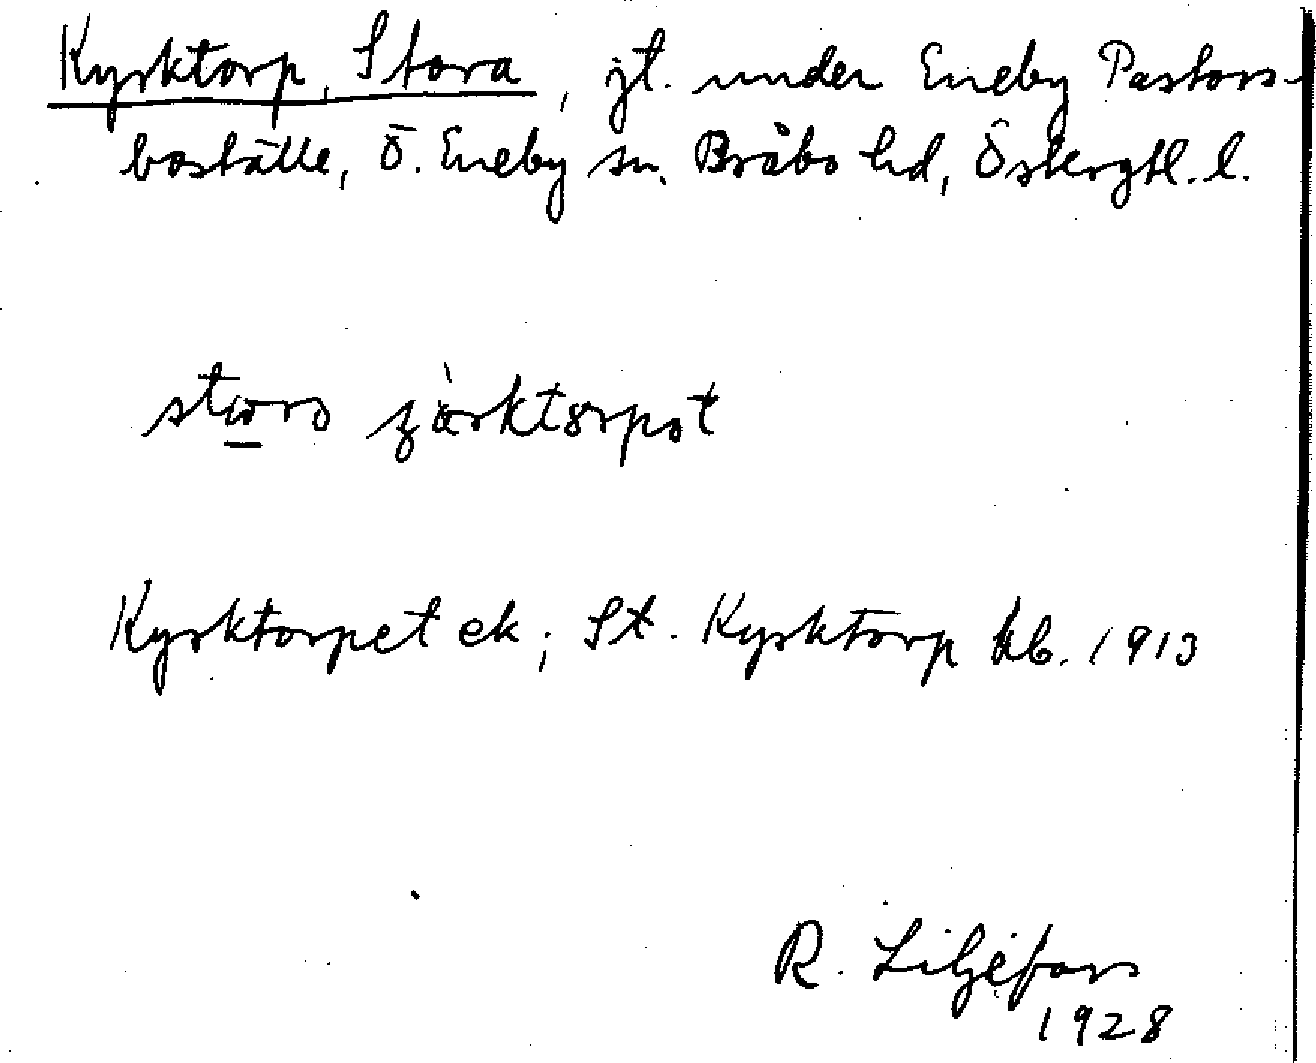 Kysktorp, Stora, jt. under Eneby Pastors-
boställe, Ö. Eneby sn. Bråbo hd, Östergtl. l.
Kysktorpet ek; St. Kysktorp kb. 1913
R. Liljefors
1928